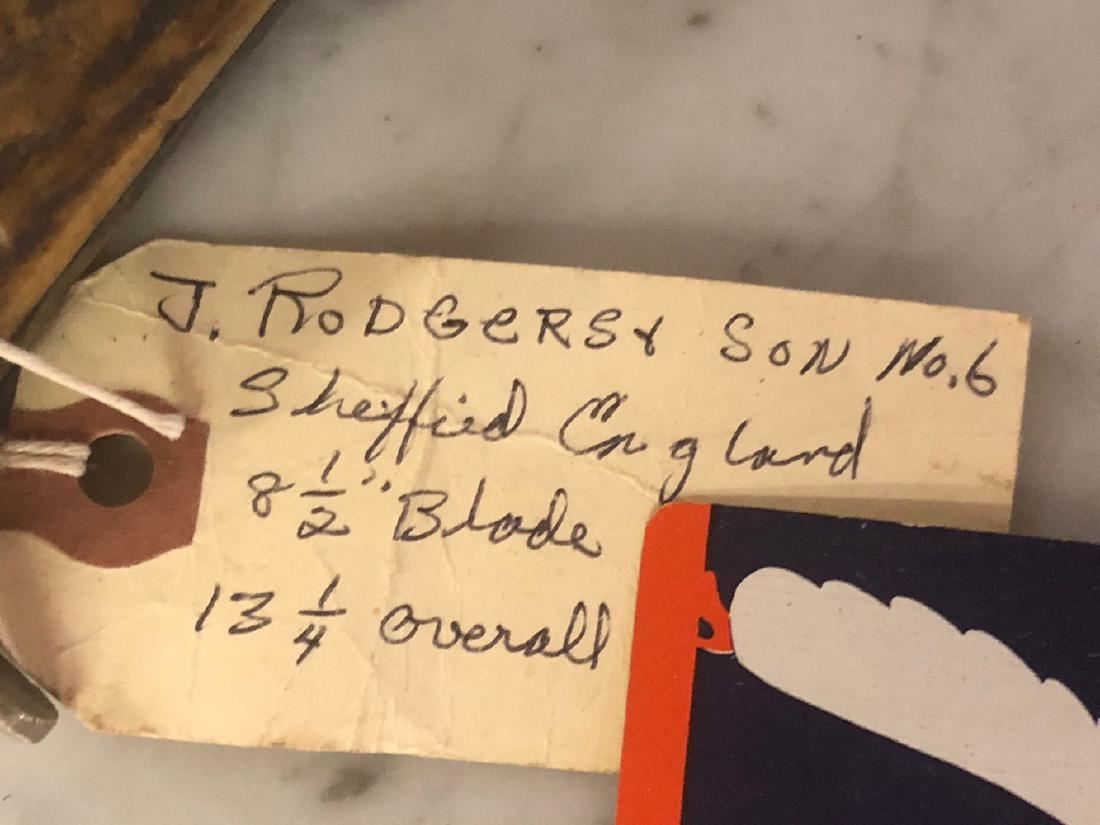 J. RODGERS & SON No. 6
Sheffied England
8 1/2" Blade
13 1/4 overall